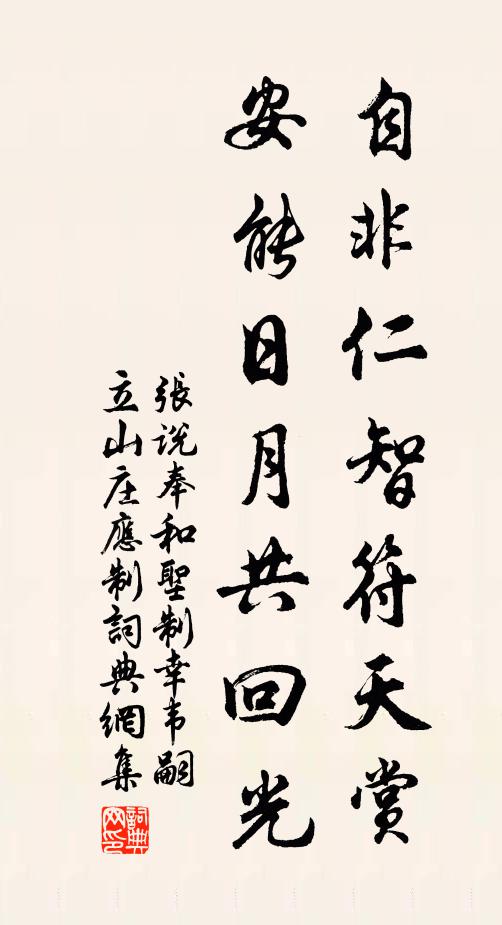 自非仁智符天賞
安能日月共回光
張説奉和聖制幸韦嗣
立山庄應制詞典網集
詞典網印